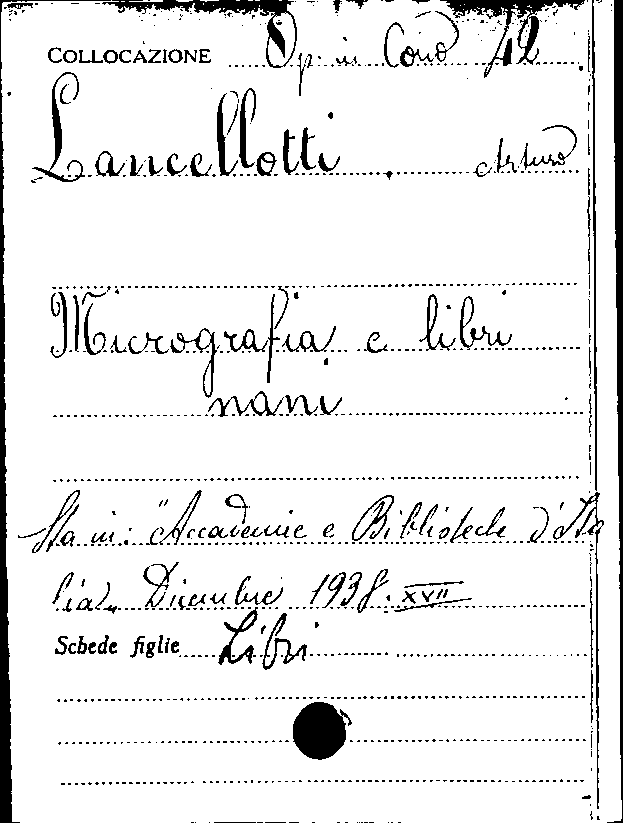 COLLOCAZIONE Op. in Cond 42
Lancellotti, Arturo
Micrografia e libri
nani
Sta in: "Accademie e Biblioteche d'Ita
lia„ Dicembre 1938. XVII
Schede figlie Libri